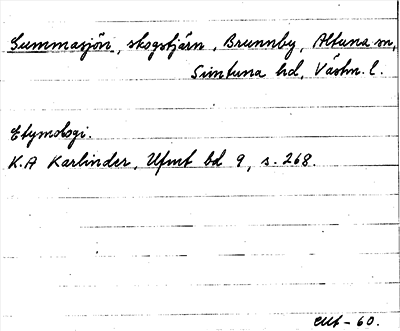 Summasjön, skogstjärn, Brunnby, Altuna sn,
Simtuna hd, Västm. l.
Etymologi.
K.A Karlinder, Ufmt bd 9, s. 268.
-60.